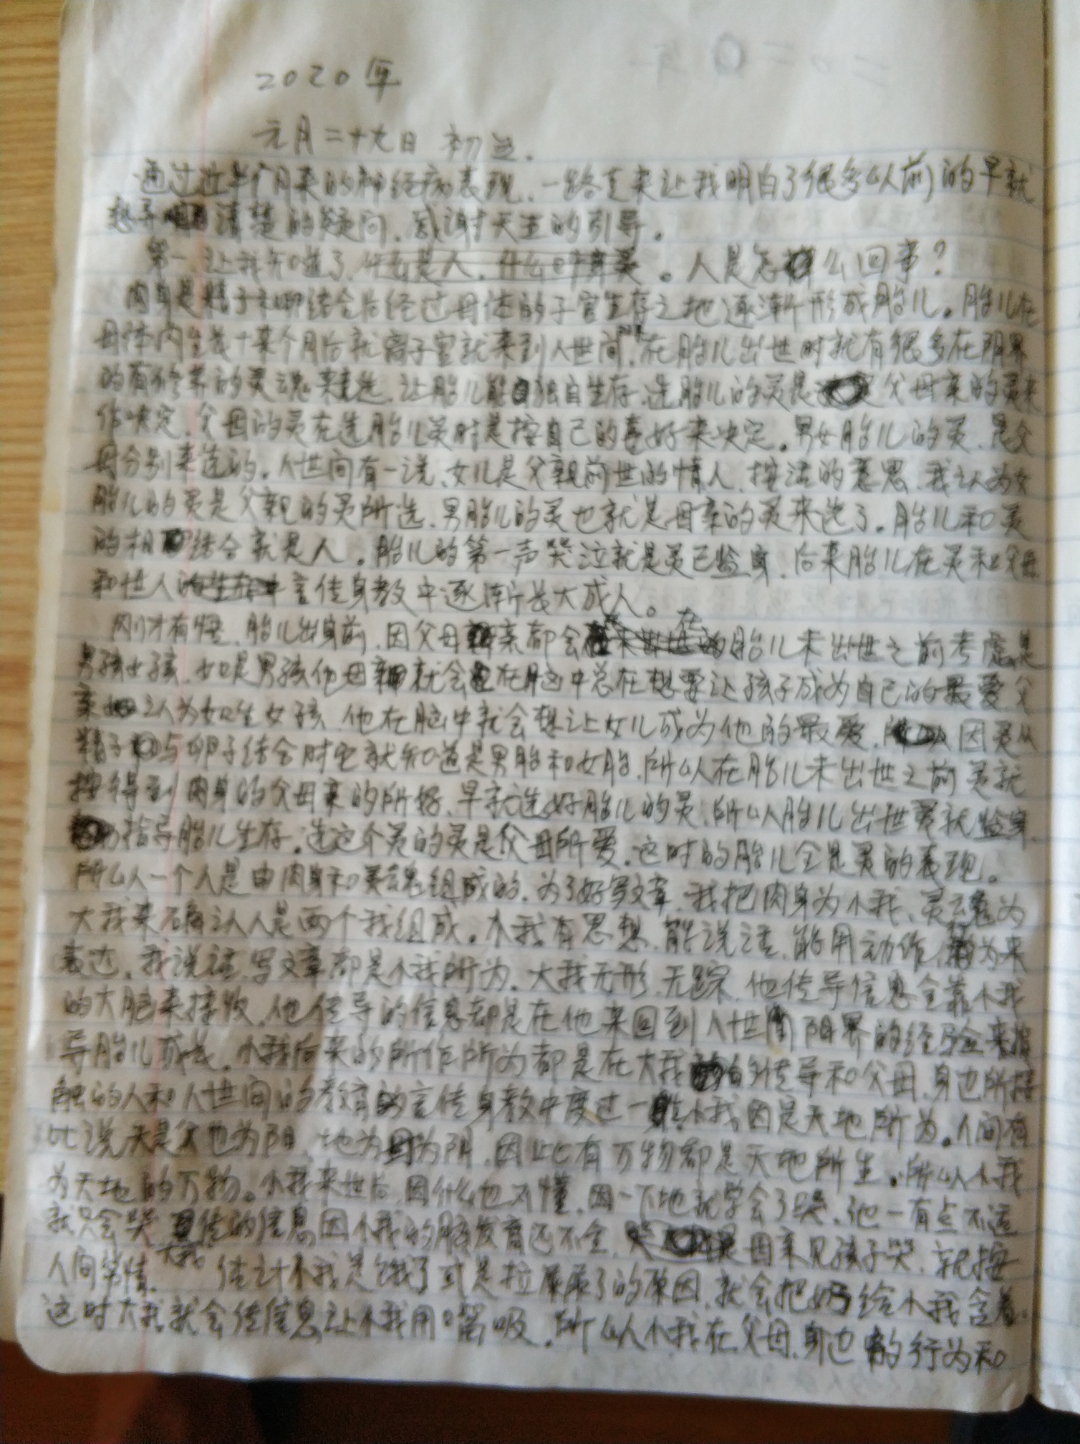 2020年
元月二十九日 初五.
通过这半个月来的神经病表现,一路走来让我明白了很多以前的早就
想 清楚的疑问,感谢天主的引导。
第一,让我知道了,什么是人,什么 。人是怎么回事?
肉身是精子和卵结合后经过母体的子宫生存之地逐渐形成胎儿。胎儿在
母体内生长十来个月后就离子宫就来到人世间,在胎儿出世时就有很多在阴界
的 的灵魂来 ,让胎儿能独自生存,选胎儿的灵是父母亲的灵来
作决定,父母的灵在选胎儿灵时是按自己的喜好来决定。男女胎儿的灵,是父
母分别来选的。人世间有一说,女儿是父亲前世的情人,按这的意思,我认为女
胎儿的灵是父亲的灵所选,男胎儿的灵也就是母亲的灵来选了。胎儿和灵
的相结合就是人。胎儿的第一声哭泣就是灵已 身,后来胎儿在灵和父母
和世人的 言传身教中逐渐长大成人。
刚才有悟,胎儿出身前,因父母亲都会在胎儿未出世之前考虑是
男孩女孩,如是男孩他母亲就会在脑中总在想要让孩子成为自己的最爱,父
亲 认为如生女孩,他在脑中就会想让女儿成为他的最爱, 因灵从
精子与卵子结合时它就知道是男胎和女胎,所以在胎儿未出世之前灵就
按得到肉身的父母亲的所好,早就选好胎儿的灵,所以胎儿出世灵就 身
指导胎儿生存,选这个灵的灵是父母所爱,这时的胎儿全是灵的表现。
所以人一个人是由肉身和灵魂组成的,为了好写文章,我把肉身为小我,灵魂为
大我来确认人是两个我组成。小我有思想,能说话,能用动作,行为来
表达,我说话,写文章都是小我所为,大我无形,无踪,他传导信息全靠小我
的大脑来接收,他传导的信息都是在他来回到人世间阳界的经验来指
导胎儿成长,小我后来的所作所为都是在大我的传导和父母,身边所接
触的人和人世间的教育的言传身教中度过一生,小我因是天地所为。人间有
比说天是父也为阳,地为 为阴,因此有万物都是天地所生。所以小我
为天地的万物。小我来世后,因什么也不懂,因一下地就学会了哭,他一有点不适
就只会哭, 传的信息因小我的脑发育还不全, 是母亲见孩子哭,就按
人间常情, 大我 估计小我是饿了或是拉屎尿了的原因,就会把奶给小我含着。
这时大我就会传信息让小我用嘴吸,所以小我在父母,身边的行为和